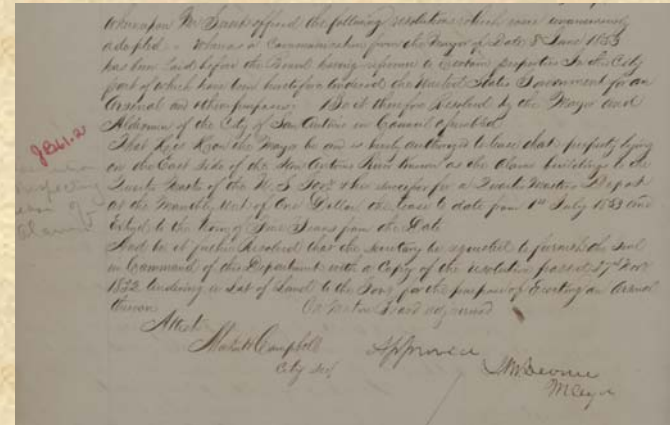 Whereupon Mr. offered the following resolutions which were unanimously
adopted. Whereas a Communication from the Mayor of Date 8 June 1853
has been laid before the Board having reference to Certain properties in the City
part of which have been heretofore tendered the United States Government for an
Arsenal and other purposes. Be it therefore Resolved by the Mayor and
Aldermen of the City of San Antonio in Council assembled
That His Honor the Mayor be and is hereby authorized to lease that property lying
on the East side of the San Antonio River known as the Alamo buildings to the
Quarter Master of the U.S. for a Quarter Masters Depot
at the Monthly rent of One Dollar the lease to date from 1st July 1853 and
Extend to the term of Years from the Date
And be it further Resolved that the Secretary be requested to furnish the
in Command of this Department with a Copy of the resolution passed 27th Nov
1852 tendering a Lot of Land to the for the purpose of Erecting an Arsenal
thereon. On motion Board adjourned
Attest
Campbell
City Sec
Approved
Mayor
JB61.2
respecting
lease of
Alamo